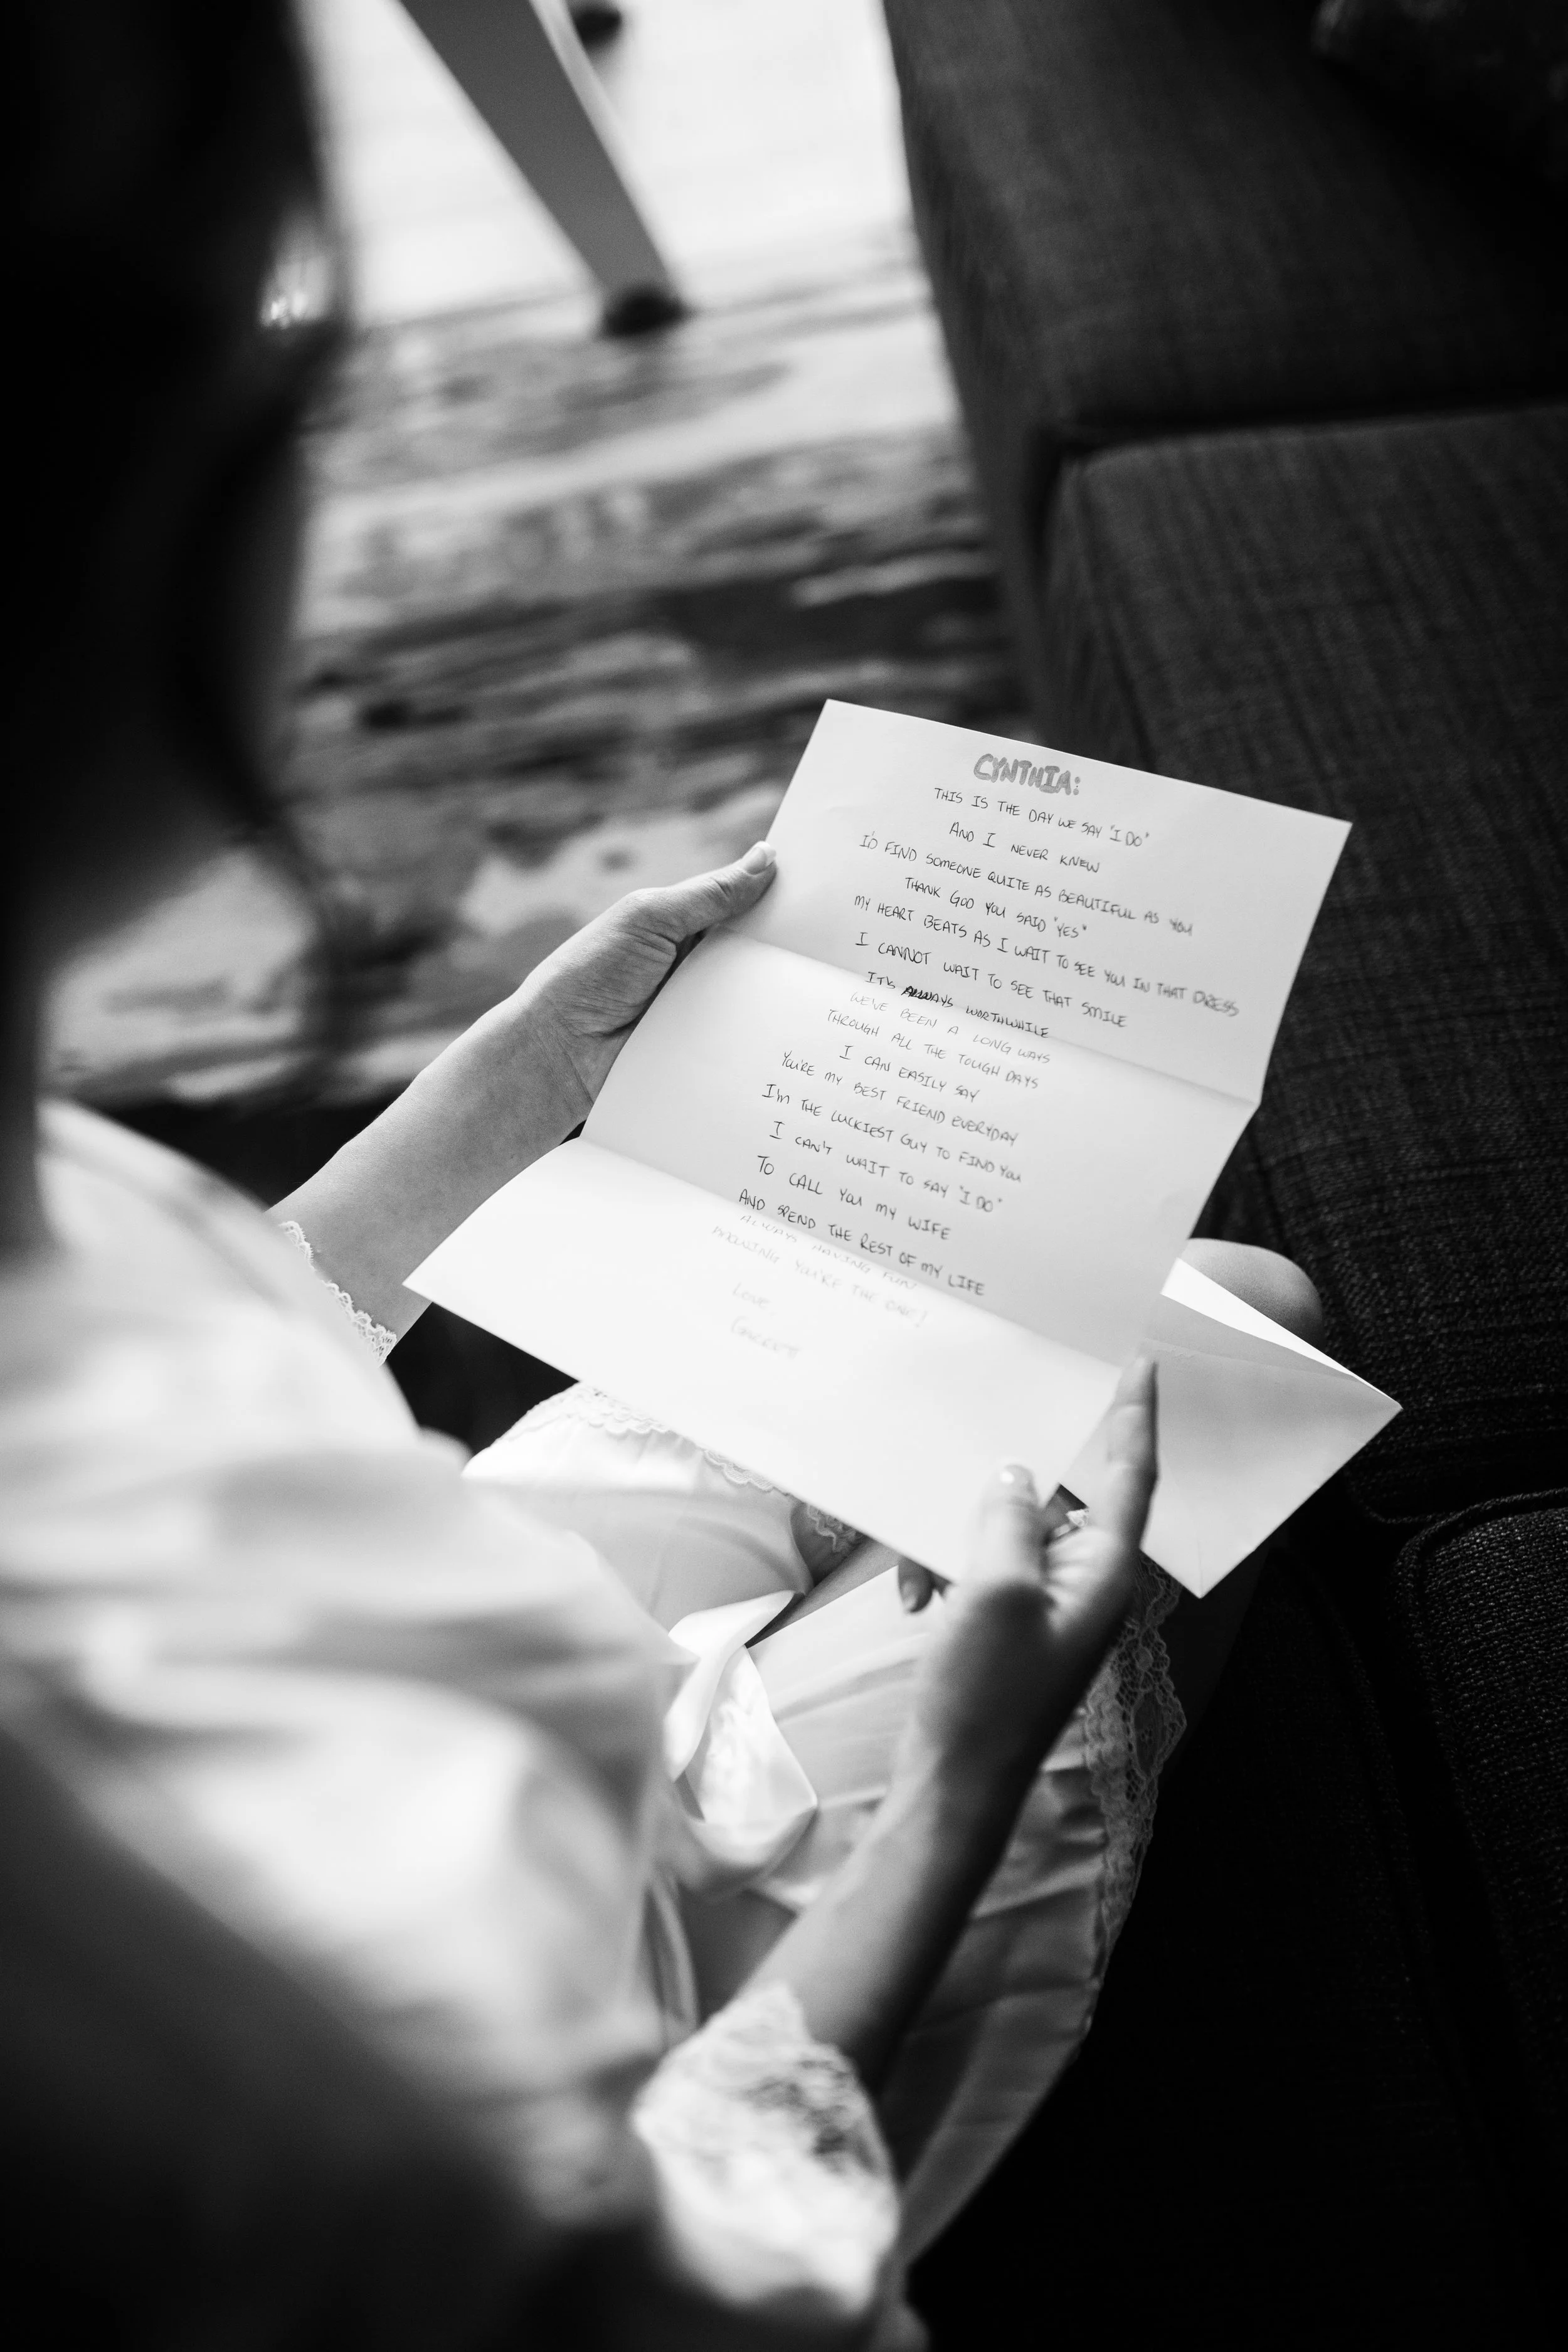 CYNTHIA:
THIS IS THE DAY WE SAY "I DO"
AND I NEVER KNEW
I'D FIND SOMEONE QUITE AS BEAUTIFUL AS YOU
THANK GOD YOU SAID "YES"
MY HEART BEATS AS I WAIT TO SEE YOU IN THAT DRESS
I CANNOT WAIT TO SEE THAT SMILE
IT'S ALWAYS WORTHWHILE
WE'VE BEEN A LONG WAYS
THROUGH ALL THE TOUGH DAYS
I CAN EASILY SAY
YOU'RE MY BEST FRIEND EVERYDAY
I'M THE LUCKIEST GUY TO FIND YOU
I CAN'T WAIT TO SAY "I DO"
TO CALL YOU MY WIFE
AND SPEND THE REST OF MY LIFE
ALWAYS HAVING FUN
KNOWING YOU'RE THE ONE!
LOVE,
GARRETT